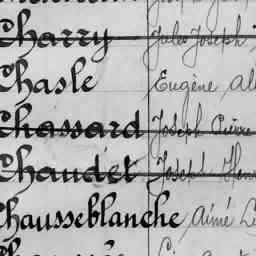 Charry Jules Joseph
Chasle Eugène
Chassard Joseph Pierre
Chaudet Joseph Henri
Chausseblanche Aimé